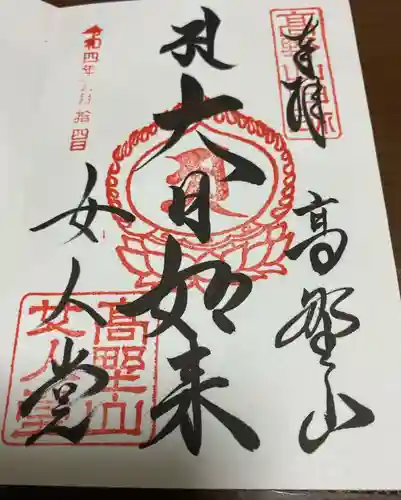 奉拝
高野山
大日如来
女人堂
令和四年 月拾四日
高野山
女人堂